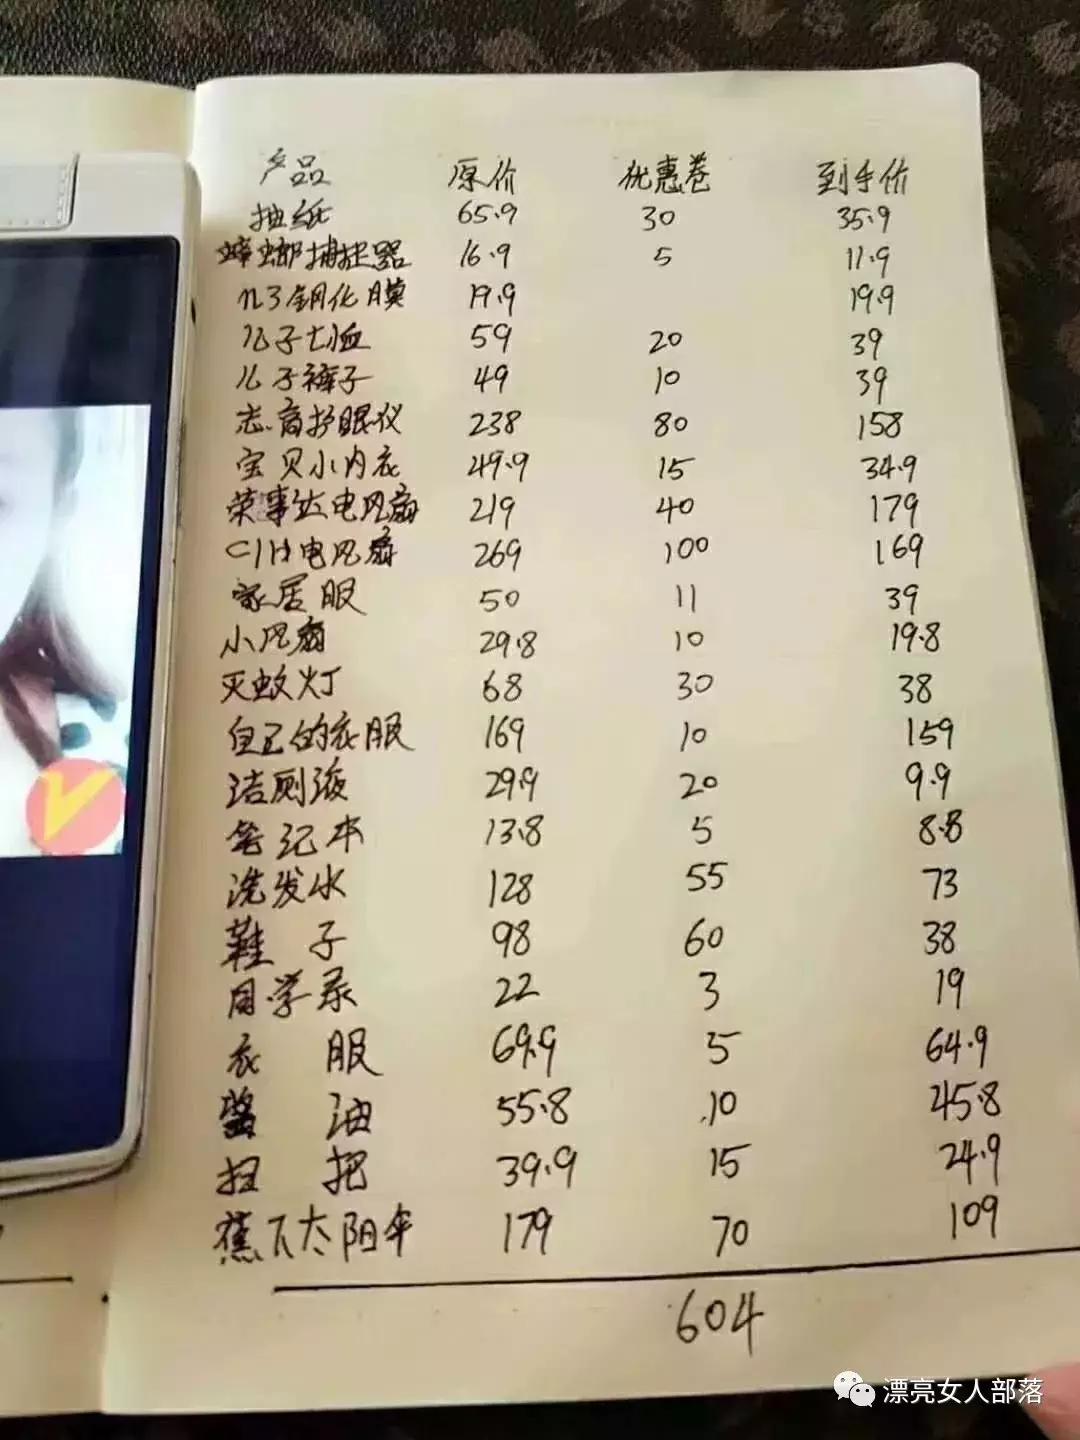 产品 原价 优惠卷 到手价
抽纸 65.9 30 35.9
蟑螂捕捉器 16.9 5 11.9
n3钢化膜 19.9 19.9
儿子七恤 59 20 39
儿子裤子 49 10 39
志高护眼仪 238 80 158
宝贝小内衣 49.9 15 34.9
荣事达电风扇 219 40 179
电风扇 269 100 169
家居服 50 11 39
小风扇 29.8 10 19.8
灭蚊灯 68 30 38
自己的衣服 169 10 159
洁厕液 29.9 20 9.9
笔记本 13.8 5 8.8
洗发水 128 55 73
鞋子 98 60 38
同学录 22 3 19
衣服 69.9 5 64.9
酱油 55.8 10 45.8
扫把 39.9 15 24.9
蕉下太阳伞 179 70 109
604
漂亮女人部落